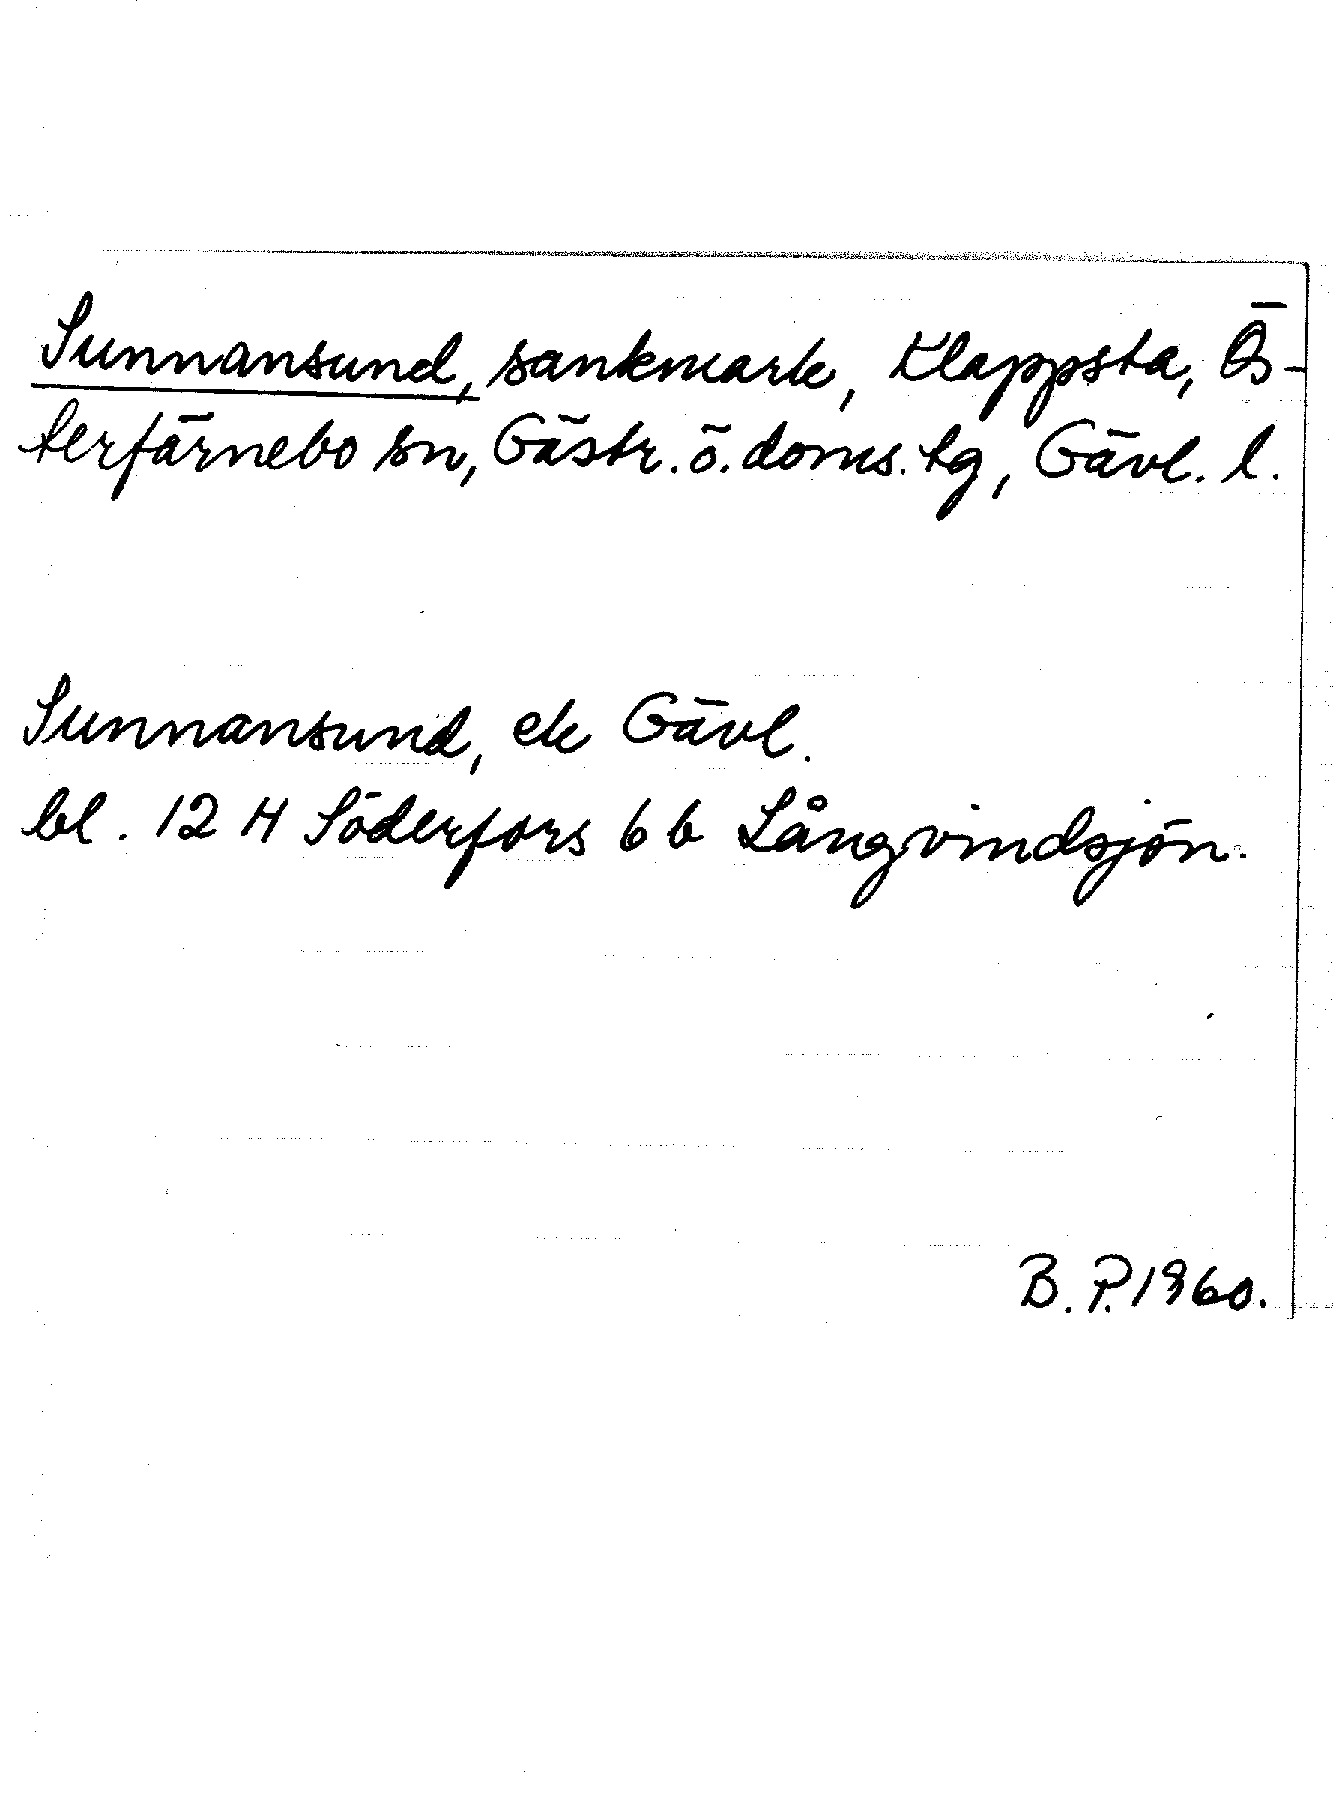 Sunnansund, sankmark, Klappsta, Ös-
terfärnebo sn, Gästr. ö. doms. tg, Gävl. l.
Sunnansund, ek Gävl.
bl. 12 H Söderfors 6 b Långvindsjön.
B. P. 1960.